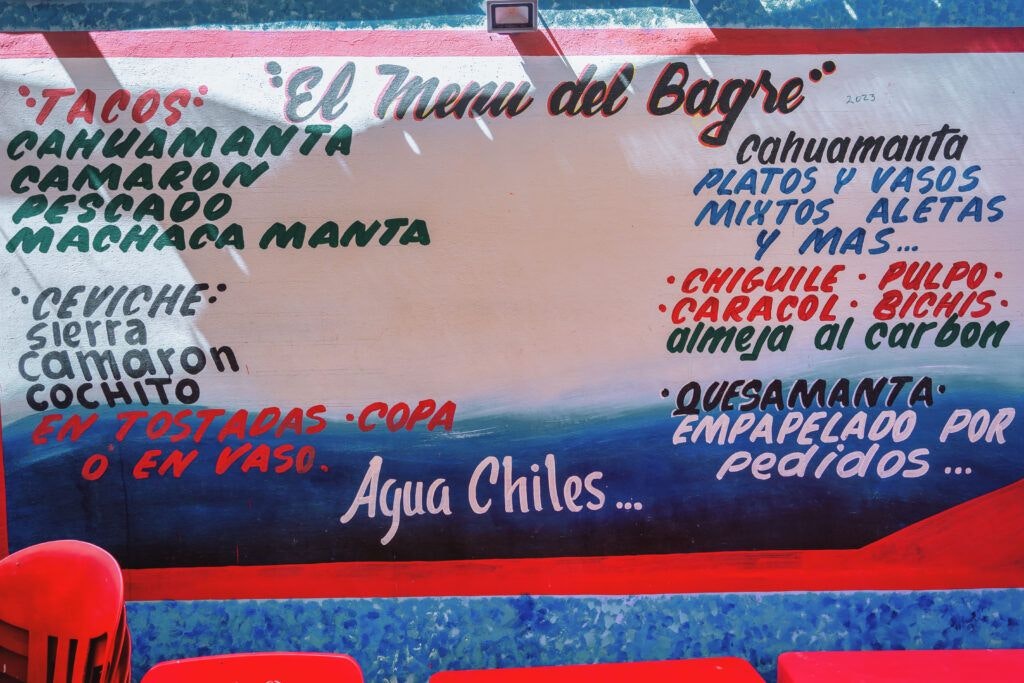 "El Menu del Bagre"
2023
TACOS
CAHUAMANTA
CAMARON
PESCADO
MACHACA MANTA
CEVICHE
sierra
camaron
COCHITO
EN TOSTADAS · COPA
O EN VASO.
Cahuamanta
PLATOS Y VASOS
MIXTOS ALETAS
Y MAS...
· CHIGUILE · PULPO ·
· CARACOL · BICHIS ·
almeja al carbon
· QUESAMANTA ·
EMPAPELADO POR
Pedidos ...
Agua Chiles ...